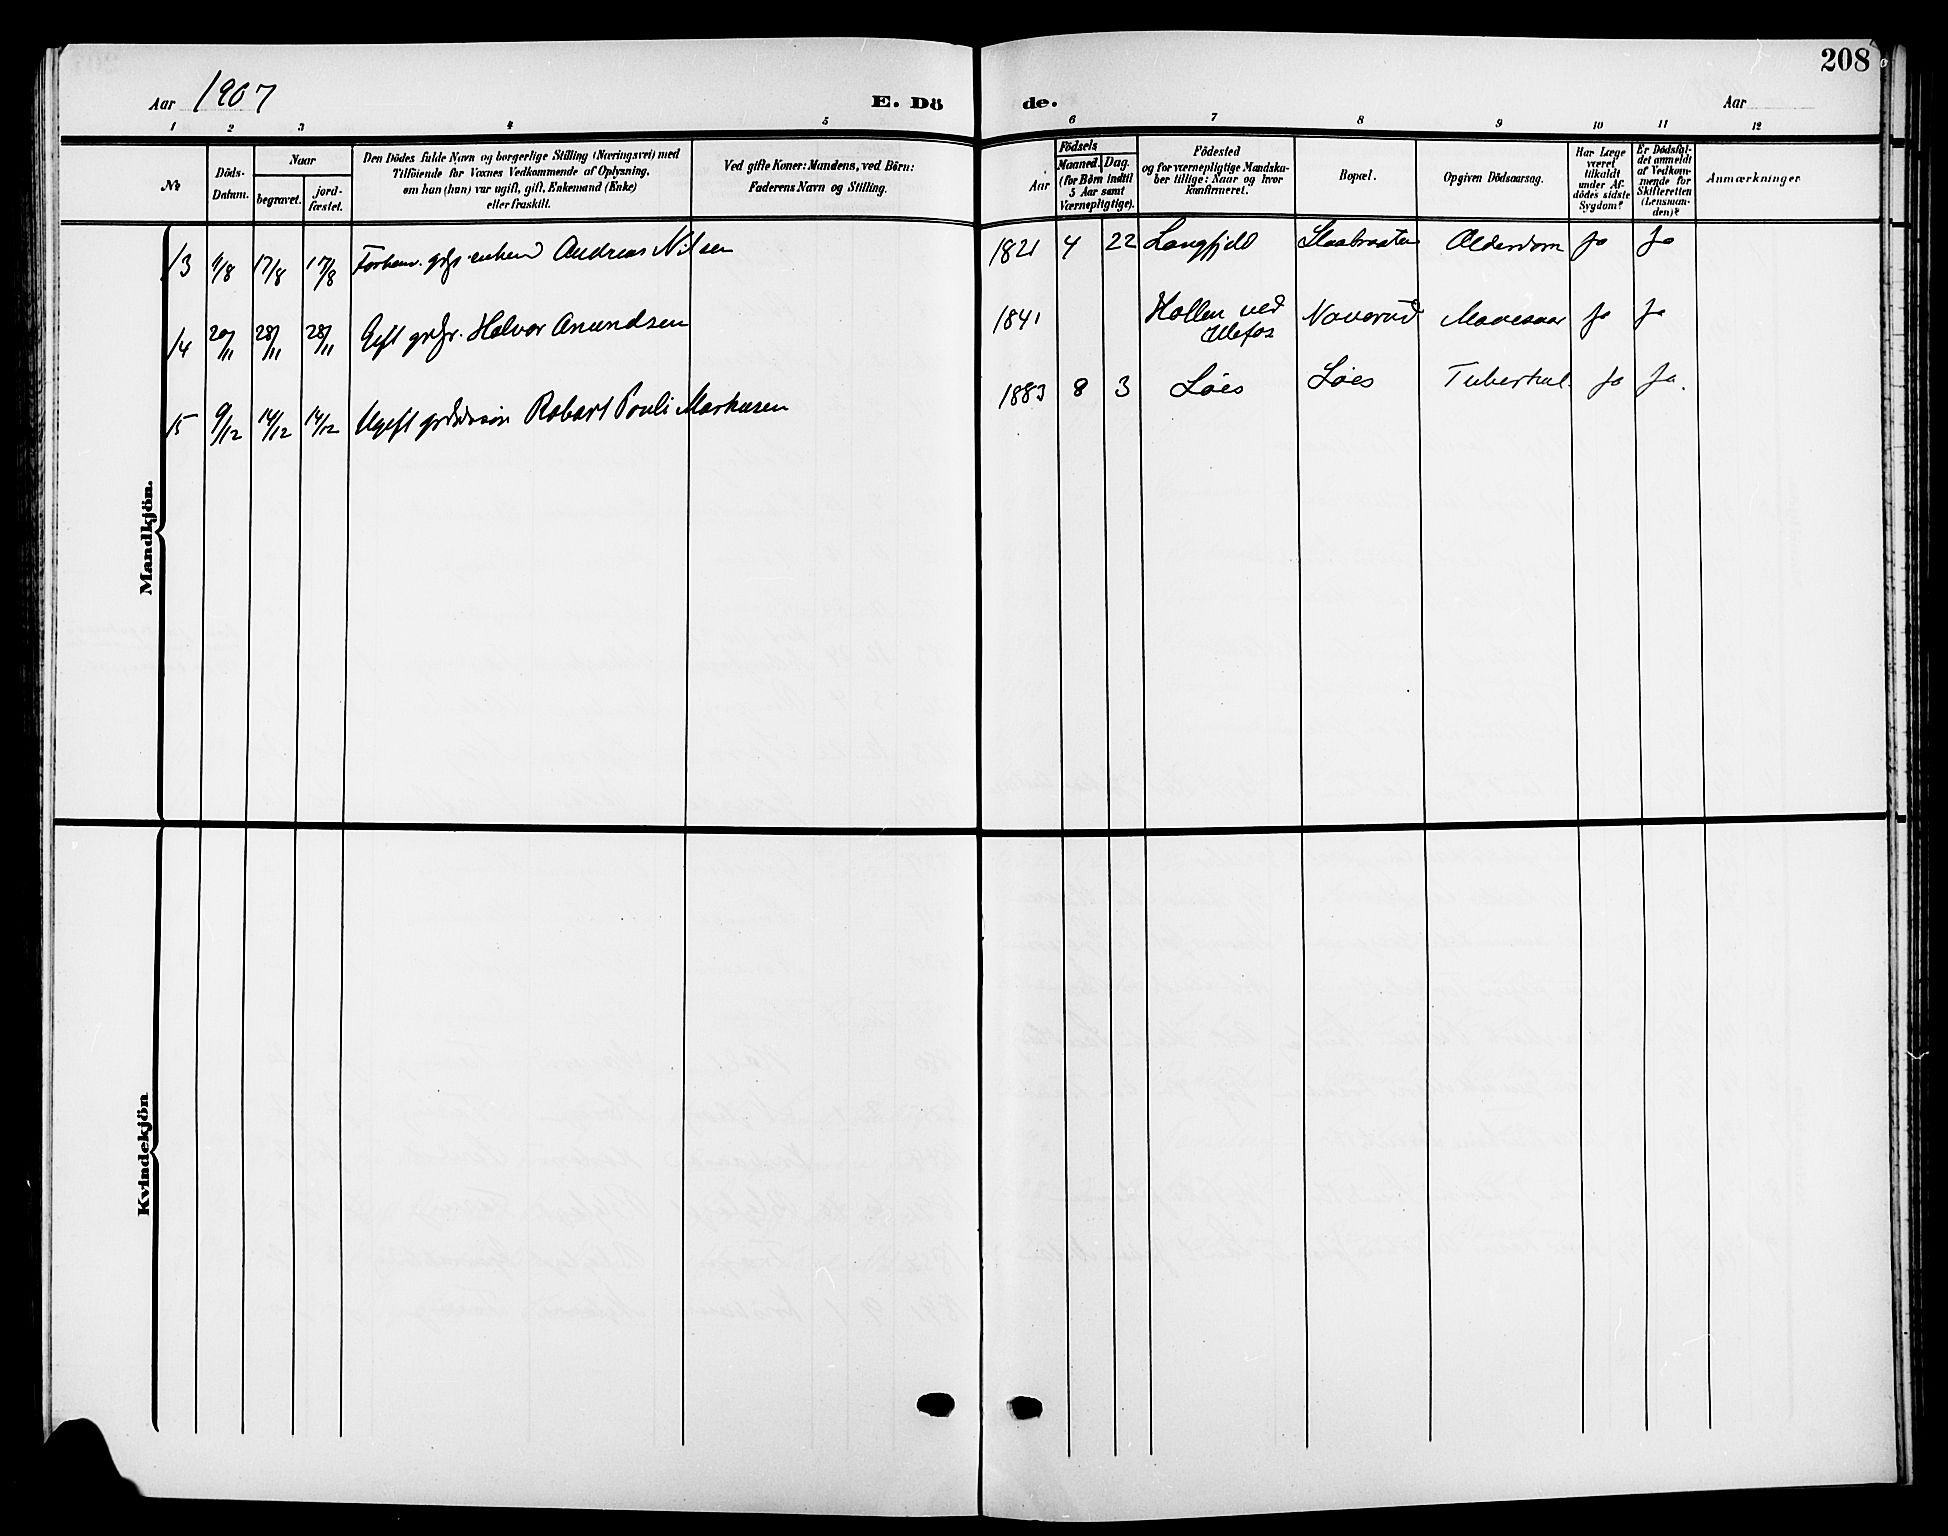 208
Aar 1907 E. Dö de. Aar
1 2 3 4 5 6 7 8 9 10 11 12
No
Döds-
Datum.
Naar
begravet.
jord-
fæstet.
Den Dödes fulde Navn og borgerlige Stilling (Næringsvei) med
Tilföiende for Voxnes Vedkommende af Oplysning,
om han (hun) var ugift, gift, Enkemand (Enke)
eller fraskilt.
Ved gifte Koner: Mandens, ved Börn:
Faderens Navn og Stilling.
Födsels
Aar
Maaned.
Dag.
(for Börn indtil
5 Aar samt
Værnepligtige).
Födested
og for værnepligtige Mandska-
ber tillige: Naar og hvor
konfirmeret.
Bopæl.
Opgiven Dödsaarsag.
Har Læge
været
tilkaldt
under Af-
dödes sidste
Sygdom?
Er Dödsfal-
det anmeldt
af Vedkom-
mende for
Skifteretten
(Lensman-
den)?
Anmærkninger
Mandkjön.
13 11/8 17/8 17/8 Andreas Nilsen 1821 4 22 Langfjeld Alderdom Ja Ja
14 20/11 28/11 28/11 Gift Halvor Anundsen 1841 Hollen ved
Ulefos Ja Ja
15 9/12 14/12 14/12 Ugift Robert Pouli Markusen 1883 8 3 Löes Löes Tuberkul. Ja Ja.
Kvindekjön